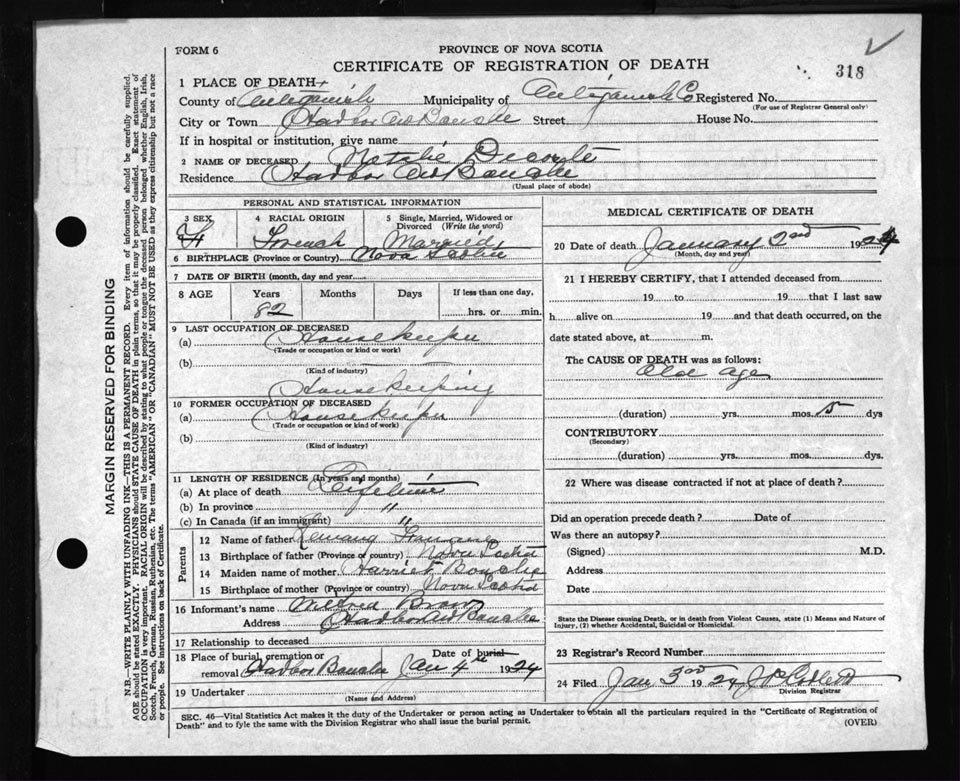 FORM 6
PROVINCE OF NOVA SCOTIA
CERTIFICATE OF REGISTRATION OF DEATH
318
1 PLACE OF DEATH
County of Antigonish Municipality of Antigonish Co Registered No.
(For use of Registrar General only)
City or Town Harbor Au Bouche Street House No.
If in hospital or institution, give name
2 NAME OF DECEASED Decoste
Residence Harbor Au Bouche
(Usual place of abode)
PERSONAL AND STATISTICAL INFORMATION
3 SEX F
4 RACIAL ORIGIN French
5 Single, Married, Widowed or Divorced (Write the word) Married
6 BIRTHPLACE (Province or Country) Nova Scotia
7 DATE OF BIRTH (month, day and year)
8 AGE Years Months Days If less than one day,
82 hrs. or min.
9 LAST OCCUPATION OF DECEASED
(a) Housekeeper
(Trade or occupation or kind or work)
(b)
(Kind of industry)
Housekeeping
10 FORMER OCCUPATION OF DECEASED
(a) Housekeeper
(Trade or occupation or kind of work)
(b)
(Kind of industry)
11 LENGTH OF RESIDENCE (In years and months)
(a) At place of death Lifetime
(b) In province "
(c) In Canada (if an immigrant) "
Parents
12 Name of father
13 Birthplace of father (Province or country) Nova Scotia
14 Maiden name of mother Harriet Bouche
15 Birthplace of mother (Province or country) Nova Scotia
16 Informant's name
Address Harbor Au Bouche
17 Relationship to deceased
18 Place of burial, cremation or removal Harbor Bouche Date of burial Jan 4th 1924
19 Undertaker
(Name and Address)
MEDICAL CERTIFICATE OF DEATH
20 Date of death January 2nd 1924
(Month, day and year)
21 I HEREBY CERTIFY, that I attended deceased from
19 to 19 that I last saw
h alive on 19 and that death occurred, on the
date stated above, at m.
The CAUSE OF DEATH was as follows:
Old age
(duration) yrs. mos. 15 dys
CONTRIBUTORY
(Secondary)
(duration) yrs. mos. dys.
22 Where was disease contracted if not at place of death?
Did an operation precede death? Date of
Was there an autopsy?
(Signed) M.D.
Address
Date
State the Disease causing Death, or in death from Violent Causes, state (1) Means and Nature of
Injury, (2) whether Accidental, Suicidal or Homicidal.
23 Registrar's Record Number
24 Filed Jan 3rd 1924
Division Registrar
SEC. 46—Vital Statistics Act makes it the duty of the Undertaker or person acting as Undertaker to obtain all the particulars required in the "Certificate of Registration of
Death" and to fyle the same with the Division Registrar who shall issue the burial permit.
(OVER)
MARGIN RESERVED FOR BINDING
N.B.—WRITE PLAINLY WITH UNFADING INK—THIS IS A PERMANENT RECORD. Every item of information should be carefully supplied.
AGE should be stated EXACTLY. PHYSICIANS should STATE CAUSE OF DEATH in plain terms, so that it may be properly classified. Exact statement of
OCCUPATION is very important. RACIAL ORIGIN will be described by stating to what people or tongue the deceased person belonged whether English, Irish,
Scotch, French, German, Russian, Ruthenian, etc. The terms "AMERICAN" or "CANADIAN" MUST NOT BE USED as they express citizenship but not a race
or people. See instructions on back of Certificate.